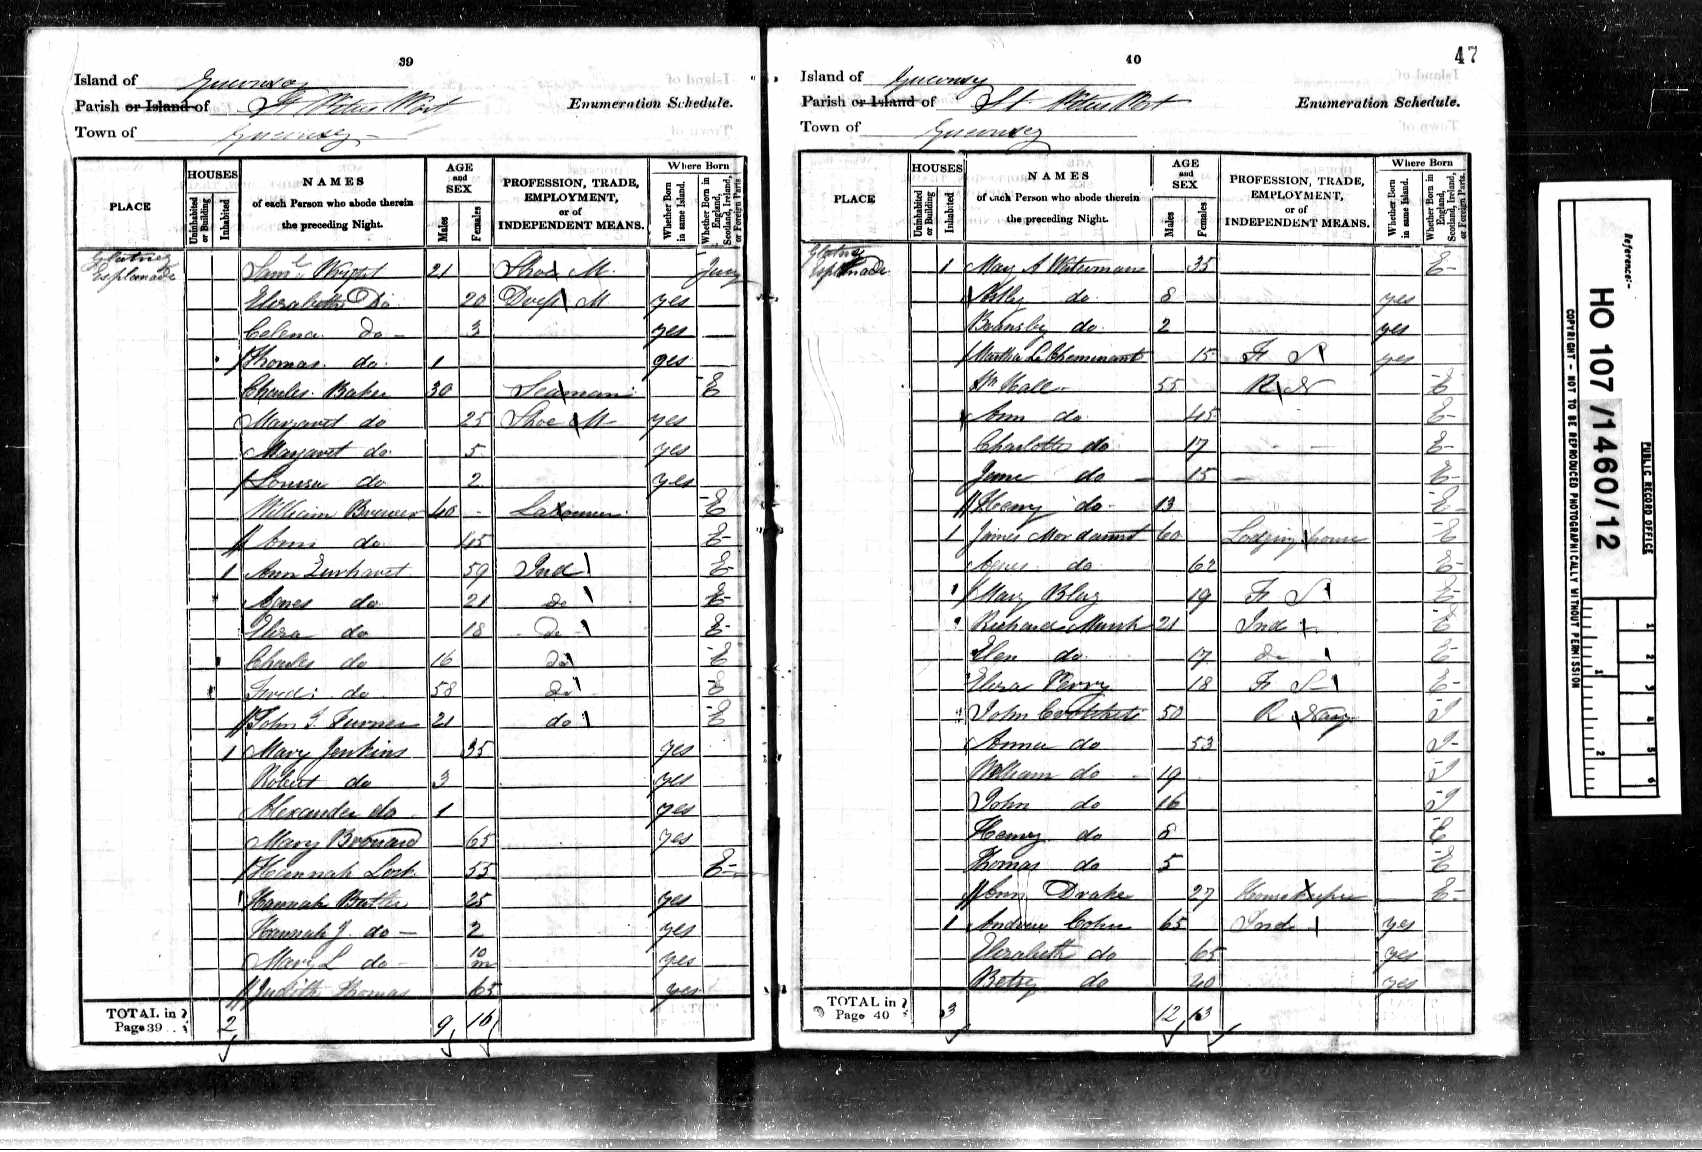 39
Island of Guernsey
Parish or Island of St Peters Port Enumeration Schedule.
Town of Guernsey
PLACE
HOUSES
Uninhabited or Building
Inhabited
NAMES
of each Person who abode therein
the preceding Night.
AGE
and
SEX
Males
Females
PROFESSION, TRADE,
EMPLOYMENT,
or of
INDEPENDENT MEANS.
Where Born
Whether Born in same Island.
Whether Born in England, Scotland, Ireland, or Foreign Parts
Glatney
Esplanade
Saml 21 Shoe M.
Elizabeth Do 20 Dress M yes
Celena do 3 yes
Thomas do 1 yes
Charles Baker 30 Seaman E
Margaret do 25 Shoe M yes
Margaret do 5 yes
Louisa do 2 yes
William Brewer 40 E
Ann do 45 E
1 Ann 59 Ind E
Agnes do 21 do E
Eliza do 18 Do E
Charles do 16 do E
do 58 do E
John Turner 21 do E
1 Mary Jenkins 35 yes
Robert do 3 yes
Alexander do 1 yes
Mary Brouard 65 yes
Hannah 55 E
Hannah Butler 25 yes
Hannah J do 2 yes
Mary L do 10 m yes
Judith Thomas 65 yes
TOTAL in
Page 39
2 9 16
40
47
Island of Guernsey
Parish or Island of St Peters Port Enumeration Schedule.
Town of Guernsey
PLACE
HOUSES
Uninhabited or Building
Inhabited
NAMES
of each Person who abode therein
the preceding Night.
AGE
and
SEX
Males
Females
PROFESSION, TRADE,
EMPLOYMENT,
or of
INDEPENDENT MEANS.
Where Born
Whether Born in same Island.
Whether Born in England, Scotland, Ireland, or Foreign Parts.
Glatney
Esplanade
1 Mary A Waterman 35 E
do 8 yes
do 2 yes
Martha Le Cheminant 15 F S yes
Wm Hall 55 R N E
Ann do 45 E
Charlotte do 17 E
Jane do 15 E
Henry do 13 E
1 James Mordaunt 60 Lodging house E
Agnes do 62 E
Mary Blay 19 F S E
Richard Marsh 21 Ind E
Elen do 17 do E
Eliza Perry 18 F S E
John 50 R Navy I
Anna do 53 I
William do 19 I
John do 16 I
Henry do 8 E
Thomas do 5 E
Ann Drake 27 Housekeeper E
1 Andrew 65 Ind yes
Elizabeth do 65 yes
Betsy do yes
TOTAL in
Page 40
3 12 13
Reference:-
HO 107/1460/12
PUBLIC RECORD OFFICE
COPYRIGHT - NOT TO BE REPRODUCED PHOTOGRAPHICALLY WITHOUT PERMISSION
1
2
3
4
5
6
1
2